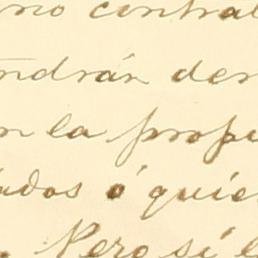 no contra
ndrán der
n la prop
ados ó quie
Pero si é